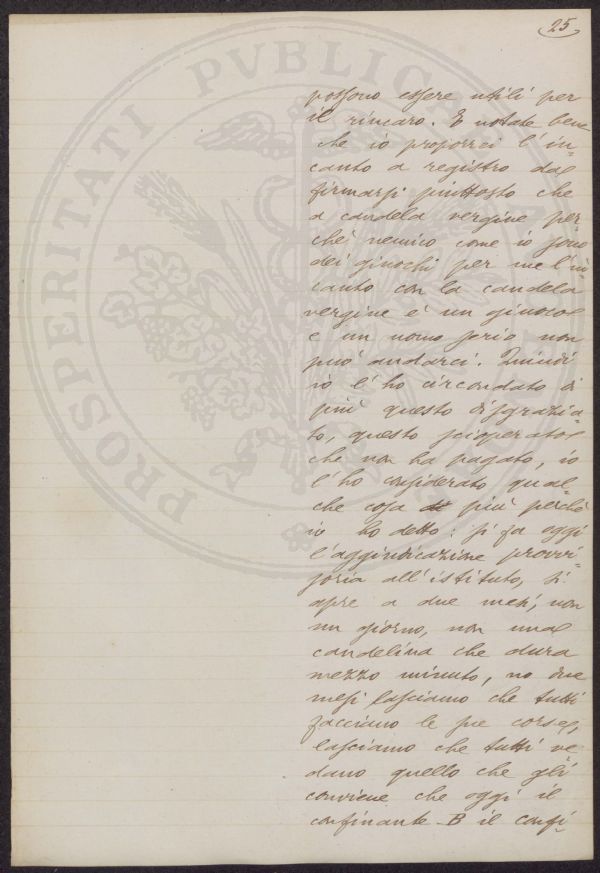 25
possono essere utili per
il rincaro. E notate bene
che io proporrei l'in=
canto a registro da
firmarsi piuttosto che
a candela vergine per=
chè nemico come io sono
dei giuochi per me l'in=
canto con la candela
vergine è un giuoco
e un uomo serio non
può andarci. Quindi
io l'ho circondato di
più questo disgrazia=
to, questo scioperato
che non ha pagato, io
l'ho considerato qual=
che cosa di più perchè
io ho detto: si fa oggi
l'aggiudicazione provvi=
soria all'istituto, si
apre a due mesi, non
un giorno, non una
candelina che dura
mezzo minuto, no due
mesi lasciamo che tutti
facciano le sue corse,
lasciamo che tutti ve=
dano quello che gli
conviene che oggi il
confinante B il confi=
PROSPERITATI PVBLICAE